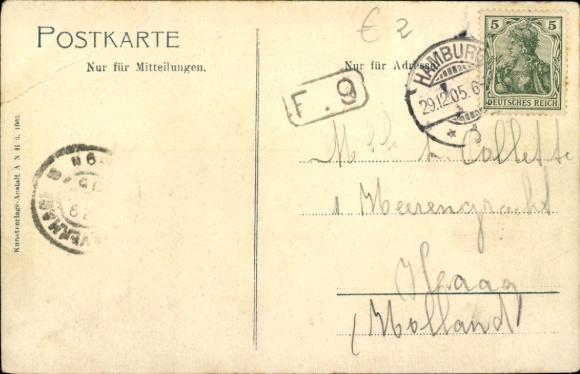 POSTKARTE
Nur für Mitteilungen.
Nur für Adresse
€ 2
F. 9
HAMBURG
29.12.05. 6-
* 3
5 5
DEUTSCHES REICH
Kunstverlags-Anstalt A N H 3. 1905
Mlle Collette
1 Heerengracht
Haag
(Holland)